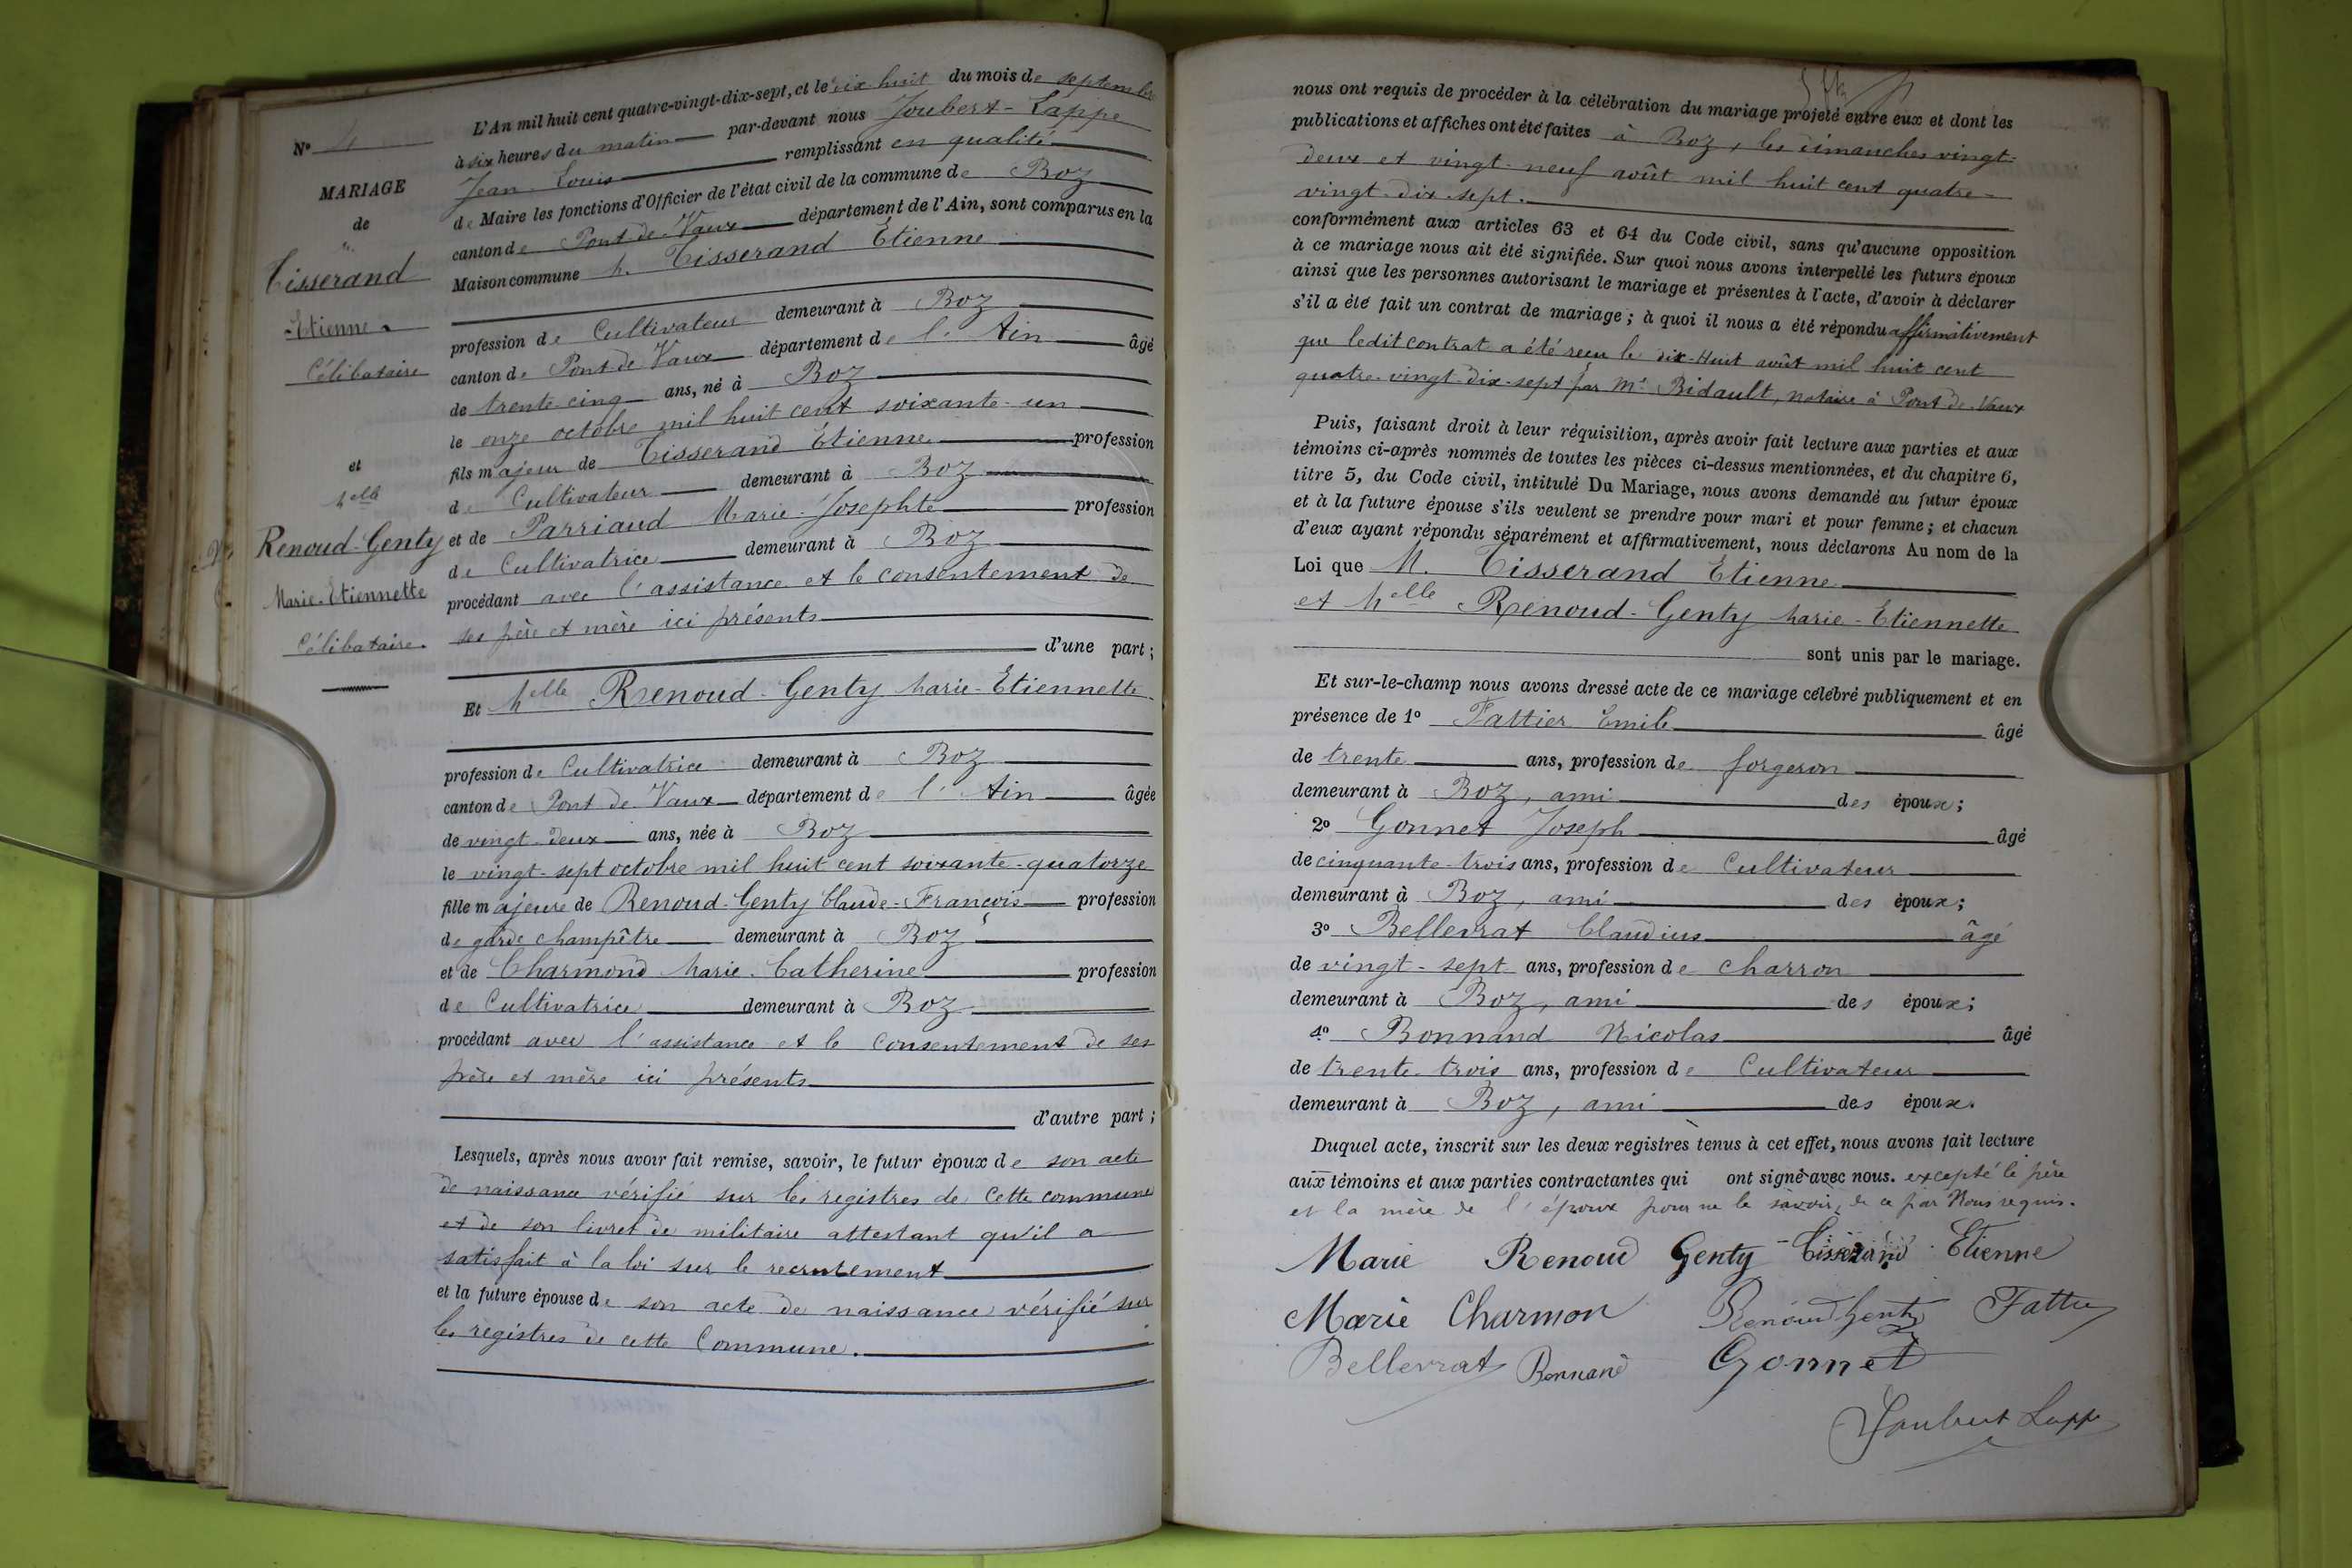 N° 
MARIAGE
de
M.
Tisserand
Etienne
Célibataire
et
Melle
Renoud-Genty
Marie-Etiennette
Célibataire.
L'An mil huit cent quatre-vingt-dix-sept, et le dix huit du mois de septembre
à six heures du matin par-devant nous Joubert-Lappe
Jean Louis remplissant en qualité
de Maire les fonctions d'Officier de l'état civil de la commune de Boz
canton de Pont de Vaux département de l'Ain, sont comparus en la
Maison commune M. Tisserand Étienne
profession de Cultivateur demeurant à Boz
canton de Pont de Vaux département de l'Ain âgé
de trente cinq ans, né à Boz
le onze octobre mil huit cent soixante-un
fils majeur de Tisserand Étienne profession
de Cultivateur demeurant à Boz
et de Parriaud Marie-Josephte profession
de Cultivatrice demeurant à Boz
procédant avec l'assistance et le consentement de
ses père et mère ici présents
d'une part;
Et Melle Renoud-Genty Marie-Etiennette
profession de Cultivatrice demeurant à Boz
canton de Pont de Vaux département de l'Ain âgée
de vingt-deux ans, née à Boz
le vingt-sept octobre mil huit cent soixante-quatorze
fille majeure de Renoud-Genty Claude-François profession
de garde champêtre demeurant à Boz
et de Charmond Marie-Catherine profession
de Cultivatrice demeurant à Boz
procédant avec l'assistance et le consentement de ses
père et mère ici présents
d'autre part;
Lesquels, après nous avoir fait remise, savoir, le futur époux de son acte
de naissance vérifié sur les registres de cette commune
et de son livret de militaire attestant qu'il a
satisfait à la loi sur le recrutement
et la future épouse de son acte de naissance vérifié sur
les registres de cette Commune.
nous ont requis de procéder à la célébration du mariage projeté entre eux et dont les
publications et affiches ont été faites à Boz, les dimanches vingt-
deux et vingt-neuf août mil huit cent quatre-
vingt-dix-sept.
conformément aux articles 63 et 64 du Code civil, sans qu'aucune opposition
à ce mariage nous ait été signifiée. Sur quoi nous avons interpellé les futurs époux
ainsi que les personnes autorisant le mariage et présentes à l'acte, d'avoir à déclarer
s'il a été fait un contrat de mariage; à quoi il nous a été répondu affirmativement
que ledit contrat a été reçu le dix-Huit août mil huit cent
quatre-vingt-dix-sept par Me Bidault, notaire à Pont de Vaux
Puis, faisant droit à leur réquisition, après avoir fait lecture aux parties et aux
témoins ci-après nommés de toutes les pièces ci-dessus mentionnées, et du chapitre 6,
titre 5, du Code civil, intitulé Du Mariage, nous avons demandé au futur époux
et à la future épouse s'ils veulent se prendre pour mari et pour femme; et chacun
d'eux ayant répondu séparément et affirmativement, nous déclarons Au nom de la
Loi que M. Tisserand Etienne
et Melle Renoud-Genty Marie-Etiennette
sont unis par le mariage.
Et sur-le-champ nous avons dressé acte de ce mariage célébré publiquement et en
présence de 1° Fattier Emile âgé
de trente ans, profession de forgeron
demeurant à Boz, ami des époux;
2° Gonnet Joseph âgé
de cinquante-trois ans, profession de Cultivateur
demeurant à Boz, ami des époux;
3° Bellevrat Claudius âgé
de vingt-sept ans, profession de charron
demeurant à Boz, ami des époux;
4° Bonnand Nicolas âgé
de trente-trois ans, profession de Cultivateur
demeurant à Boz, ami des époux.
Duquel acte, inscrit sur les deux registres tenus à cet effet, nous avons fait lecture
aux témoins et aux parties contractantes qui ont signé avec nous. excepté le père
et la mère de l'époux pour ne le savoir, de ce par Nous requis.
Marie Renoud Genty Tisserand Etienne
Marie Charmon Renoud Genty Fattier
Bellevrat Bonnand Gonnet
Joubert Lappe